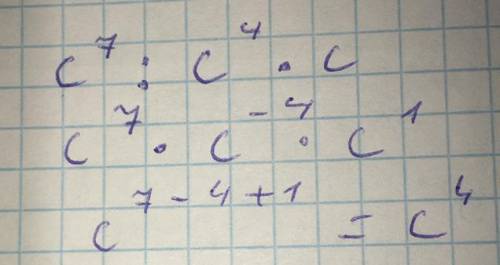 c⁷ : c⁴ · c
c⁷ · c⁻⁴ · c¹
c⁷⁻⁴⁺¹ = c⁴